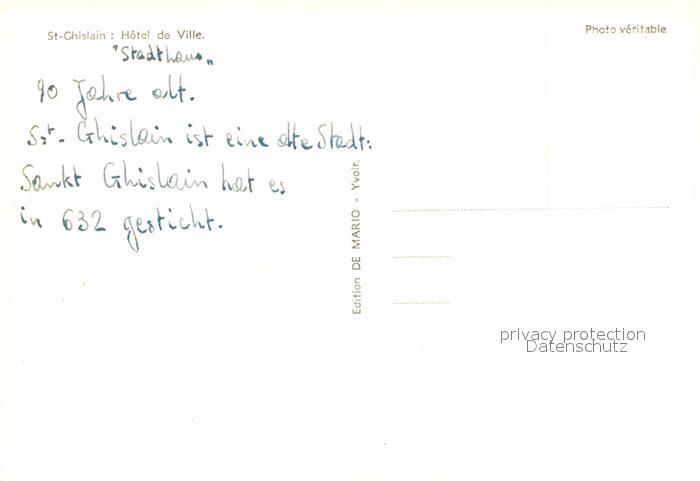 St-Ghislain : Hôtel de Ville.
Photo véritable
"Stadthaus"
90 Jahre alt.
St. Ghislain ist eine alte Stadt:
Sankt Ghislain hat es
in 632 gesticht.
Edition DE MARIO - Yvoir.
privacy protection
Datenschutz